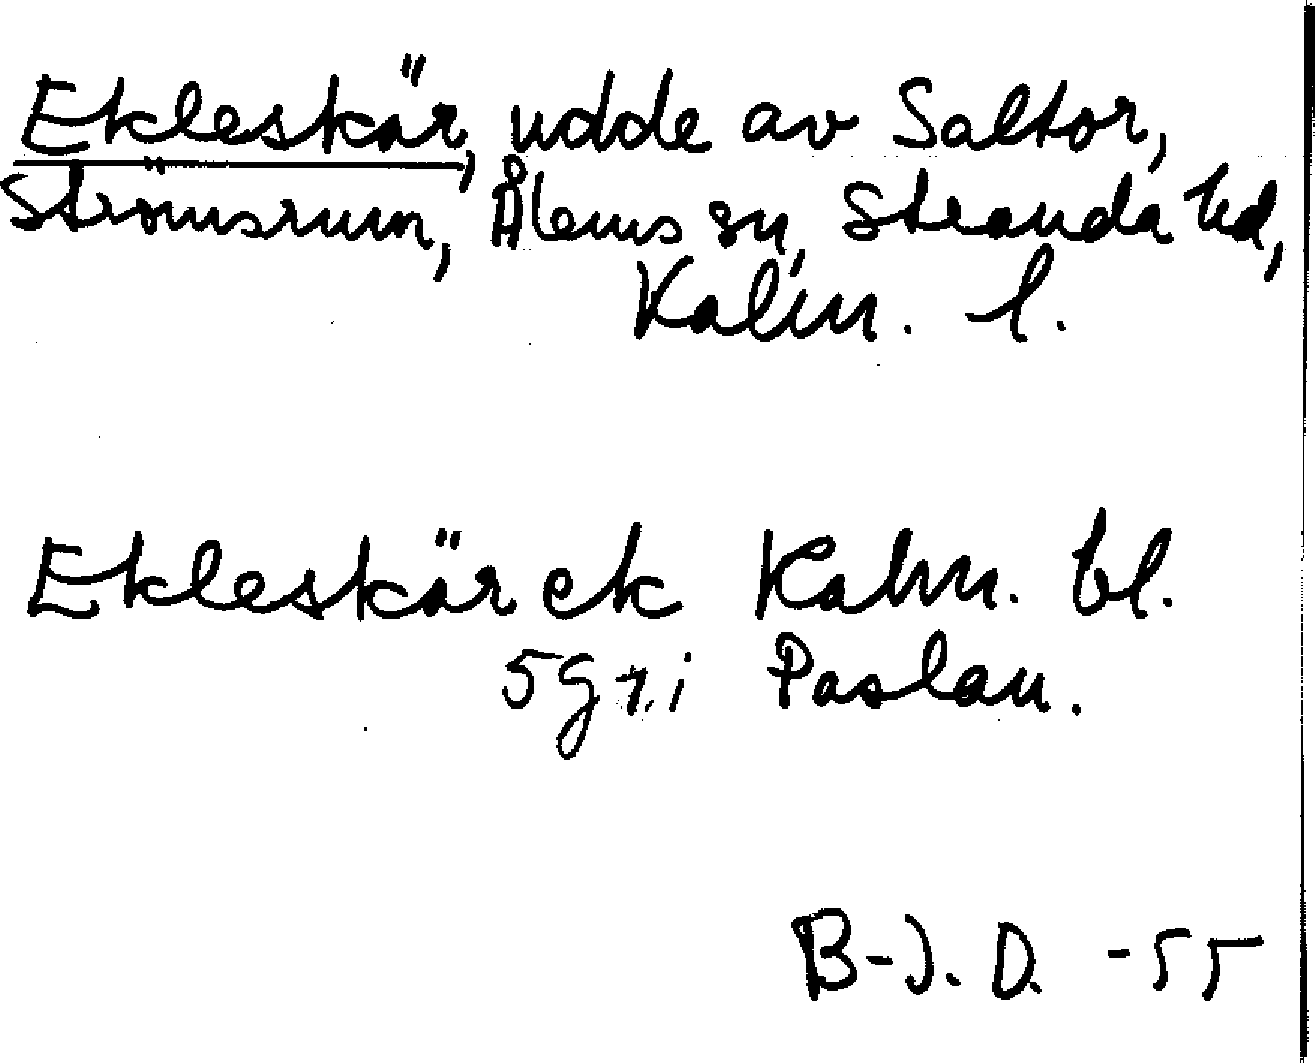 Ekleskär, udde av Saltor,
Strömsrum, Ålems sn, Stranda hd,
Kalm. l.
Ekleskär ek Kalm. bl.
5 g r. i Paslau.
B-J. D. -55